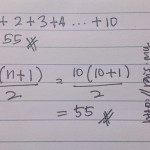 + 2 + 3 + 4 ... + 10
55
(n+1) = 10(10+1)
2 2
= 55